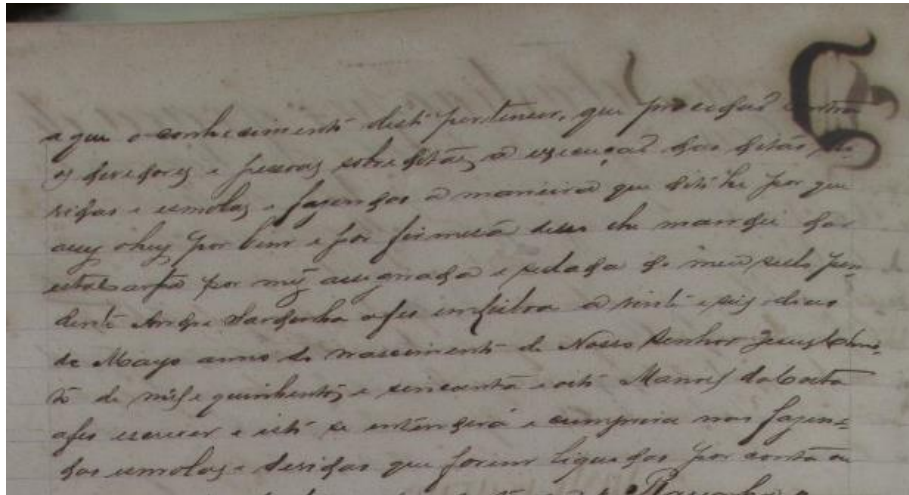 a que o conhecimento disto pertenser, que procedaõ contra
os devedores e pesoas sobreditas á execuçaõ das ditas di
vidas e esmolas e fazendas á maneira que dito he por que
assy ohey por bem e por firmesa desso lhe mandei dar
esta carta por my assignada e sellada do meu sello pen
dente Andre Sardinha afes em Lixboa á vinte e seis dias
de Mayo anno do nascimento de Nosso Senhor Jesus Chris
to de mil e quinhentos e sincoenta e oito Manoel da Costa
afes escrever e isto se entenderá e cumprira nas fazen=
das esmolas e dividas que forem liquidas por conta ou